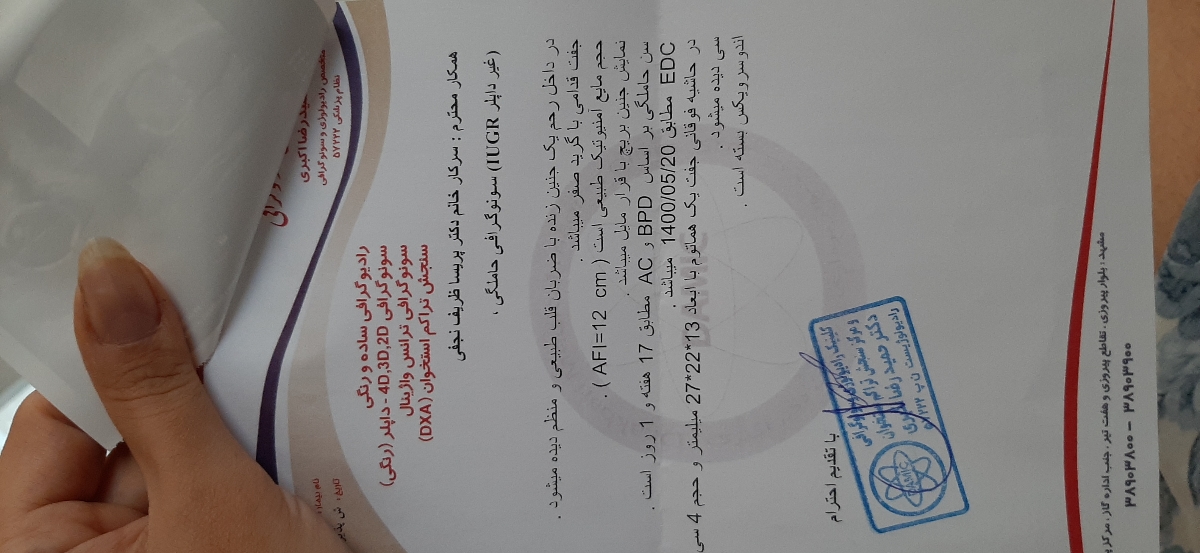 حمیدرضا اکبری
متخصص رادیولوژی و سونوگرافی
نظام پزشکی ۵۷۲۲۲
رادیوگرافی ساده و رنگی
سونوگرافی 4D,3D,2D - داپلر (رنگی)
سونوگرافی ترانس واژینال
سنجش تراکم استخوان (DXA)
نام بیمار
تاریخ :
همکار محترم : سرکار خانم دکتر پریسا ظریف نجفی
(غیر داپلر IUGR) سونوگرافی حاملگی ،
در داخل رحم یک جنین زنده با ضربان قلب طبیعی و منظم دیده میشود .
جفت قدامی با گرید صفر میباشد .
حجم مایع آمنیوتیک طبیعی است ( AFI=12 cm ) .
نمایش جنین بریچ با قرار مایل میباشد .
سن حاملگی بر اساس BPD و AC مطابق 17 هفته و 1 روز است .
EDC مطابق 1400/05/20 میباشد .
در حاشیه فوقانی جفت یک هماتوم با ابعاد 13*22*27 میلیمتر و حجم 4 سی
سی دیده میشود .
اندوسرویکس بسته است .
با تقدیم احترام
کلینیک رادیولوژی
و مرکز سنجش تراکم استخوان
دکتر حمید رضا اکبری
رادیولوژیست
DAMIC
مشهد : بلوار پیروزی ، تقاطع پیروزی و هفت تیر ، جنب اداره گاز ، مرکز
۳۸۹۰۳۸۰۰ – ۳۸۹۰۳۹۰۰